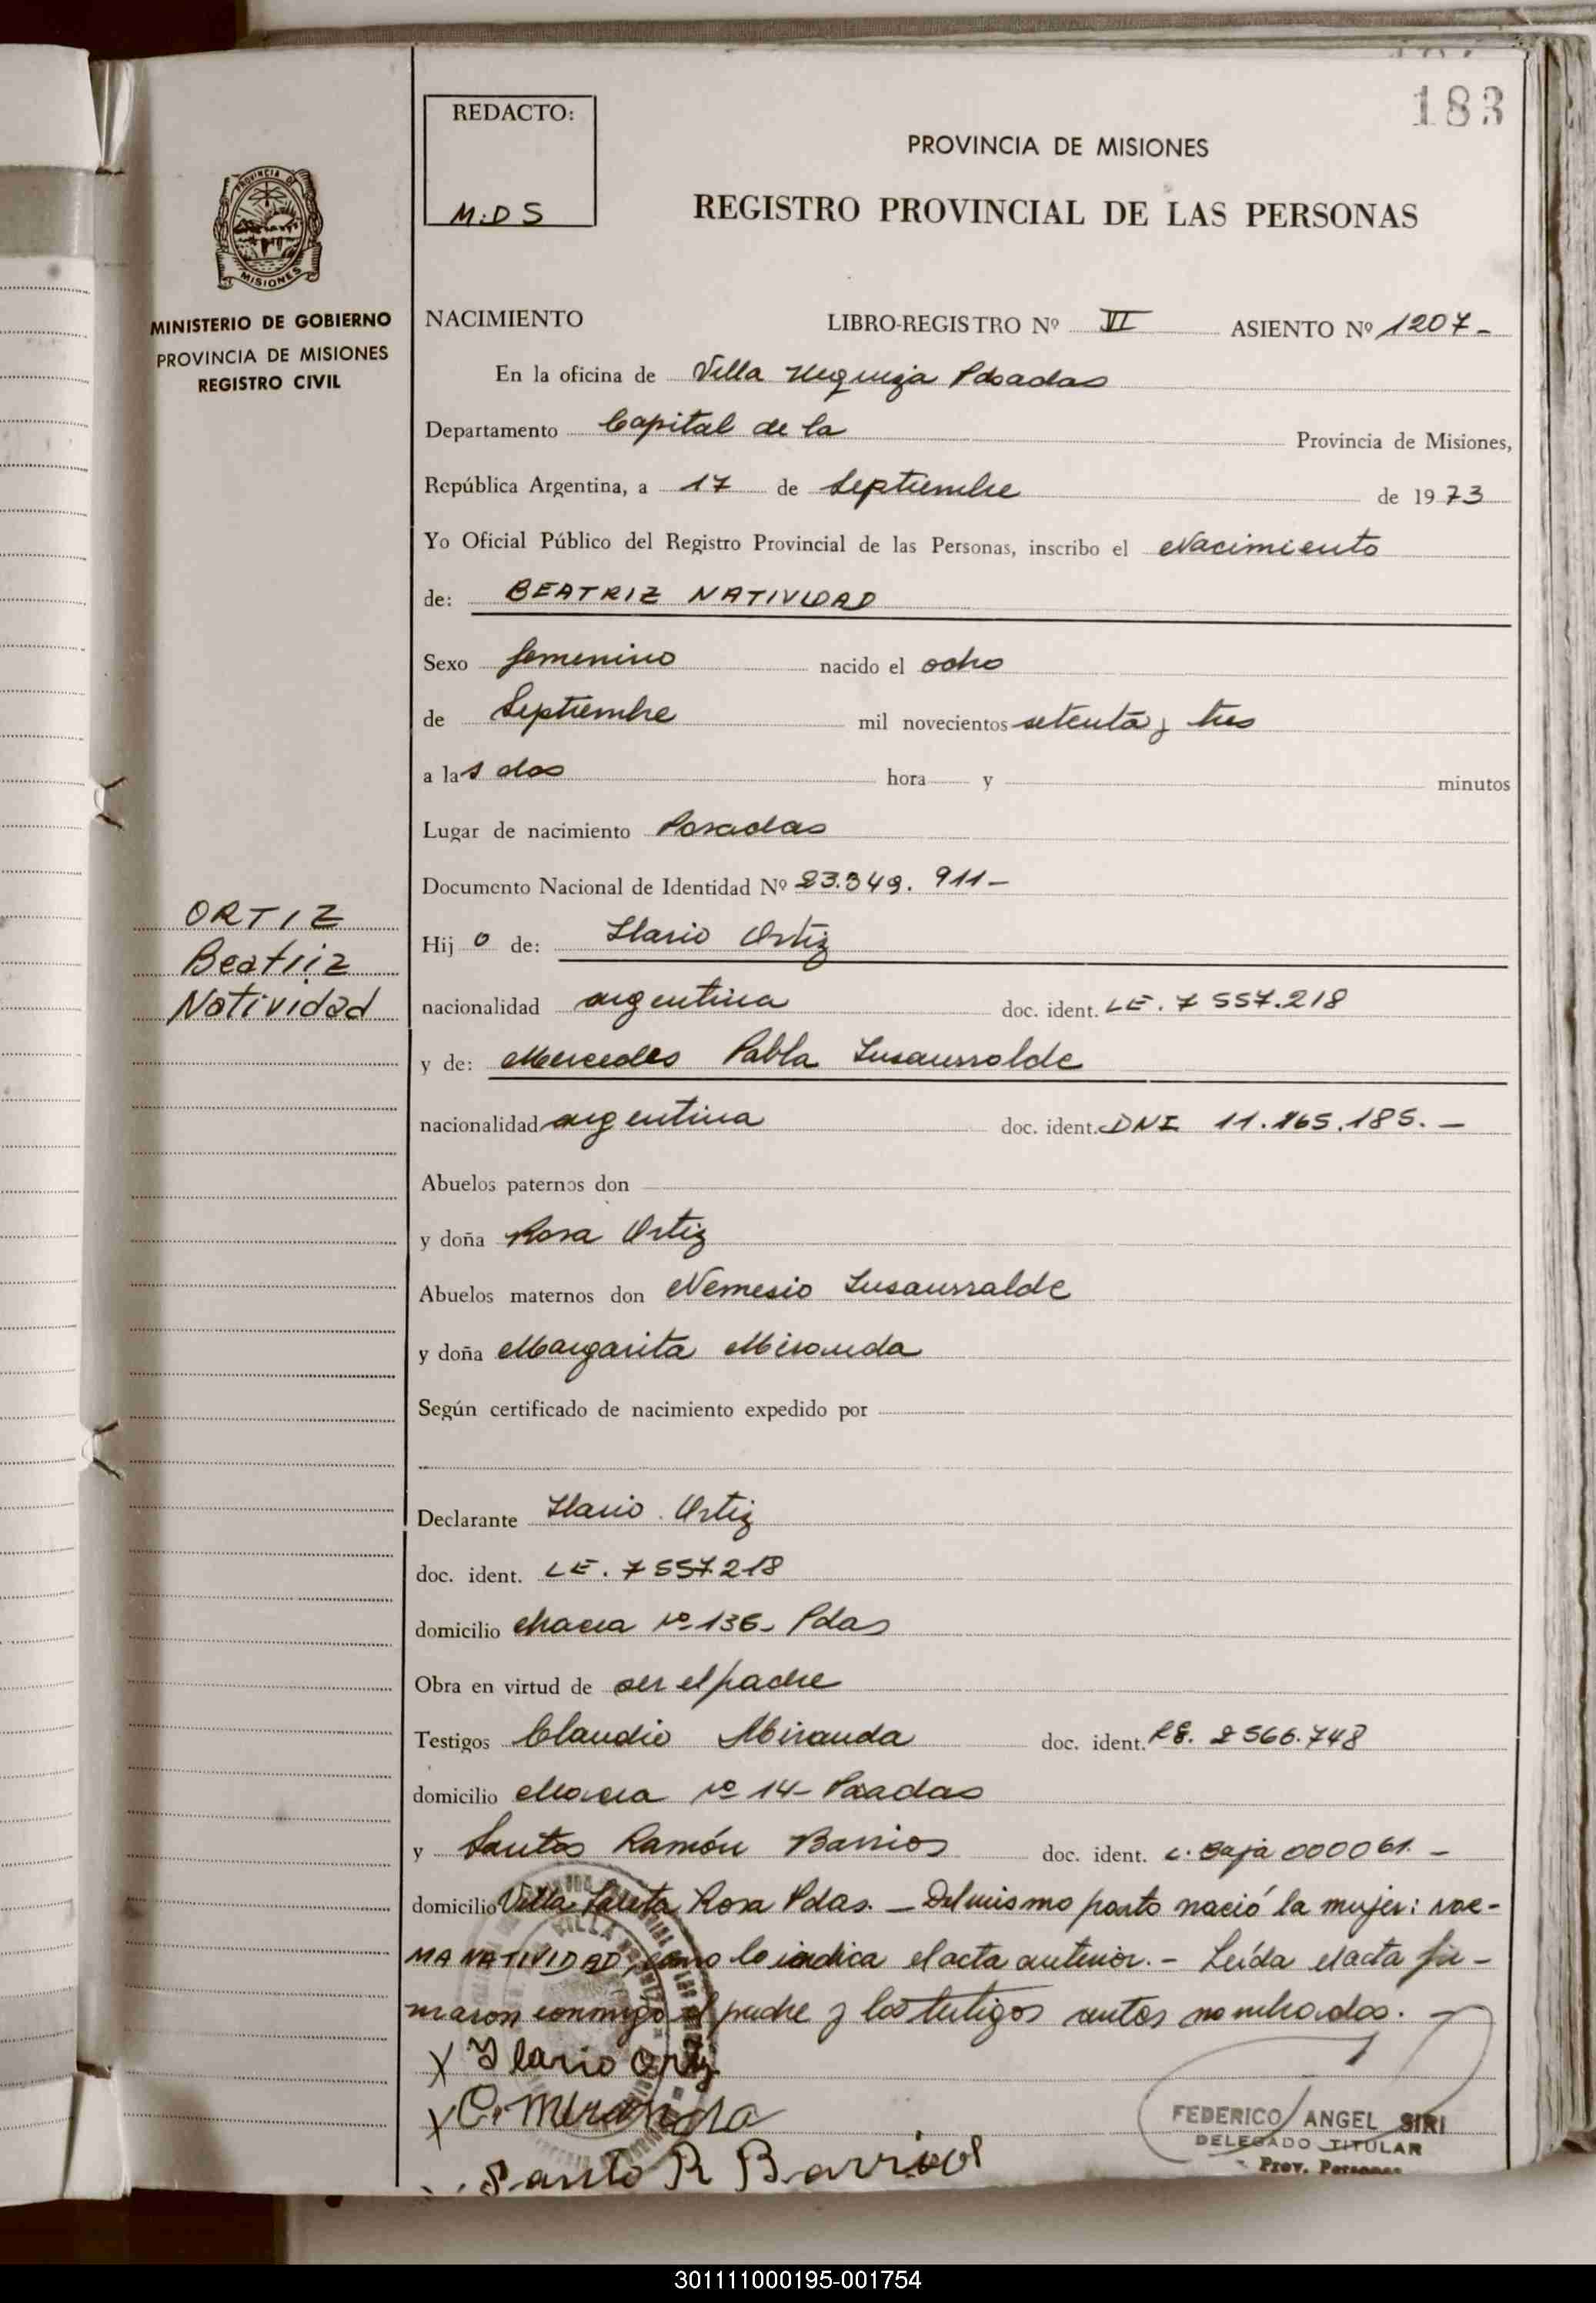 183
REDACTO:
M.D S
PROVINCIA DE MISIONES
REGISTRO PROVINCIAL DE LAS PERSONAS
PROVINCIA DE
MISIONES
MINISTERIO DE GOBIERNO
PROVINCIA DE MISIONES
REGISTRO CIVIL
NACIMIENTO LIBRO-REGISTRO Nº VI ASIENTO Nº 1207-
En la oficina de Villa Urquiza Posadas
Departamento Capital de la Provincia de Misiones,
República Argentina, a 17 de Septiembre de 1973
Yo Oficial Público del Registro Provincial de las Personas, inscribo el Nacimiento
de: BEATRIZ NATIVIDAD
Sexo femenino nacido el ocho
de Septiembre mil novecientos setenta y tres
a las dos hora y minutos
Lugar de nacimiento Posadas
Documento Nacional de Identidad Nº 23.349.911-
ORTIZ
Beatriz
Natividad
Hij o de: Ilario Ortiz
nacionalidad argentina doc. ident. LE. 7 557.218
y de: Mercedes Pabla Lusaurralde
nacionalidad argentina doc. ident. DNI 11.165.185.-
Abuelos paternos don
y doña Rosa Ortiz
Abuelos maternos don Nemesio Lusaurralde
y doña Margarita Miranda
Según certificado de nacimiento expedido por
Declarante Ilario Ortiz
doc. ident. LE. 7 557.218
domicilio chacra Nº 136- Pdas
Obra en virtud de ser el padre
Testigos Claudio Miranda doc. ident. 2 566.748
domicilio chacra Nº 14- Posadas
y Santos Ramón Barrios doc. ident. c. Baja 000061.-
domicilio Villa Santa Rosa Pdas.- Del mismo parto nació la mujer:
MA NATIVIDAD, como lo indica el acta anterior.- Leída el acta fir-
maron conmigo el padre y los testigos antes nombrados.-
X Ilario Ortiz
X C. Miranda
Santo R Barrios
FEDERICO ANGEL SIRI
DELEGADO TITULAR
Prov. Personas
301111000195-001754